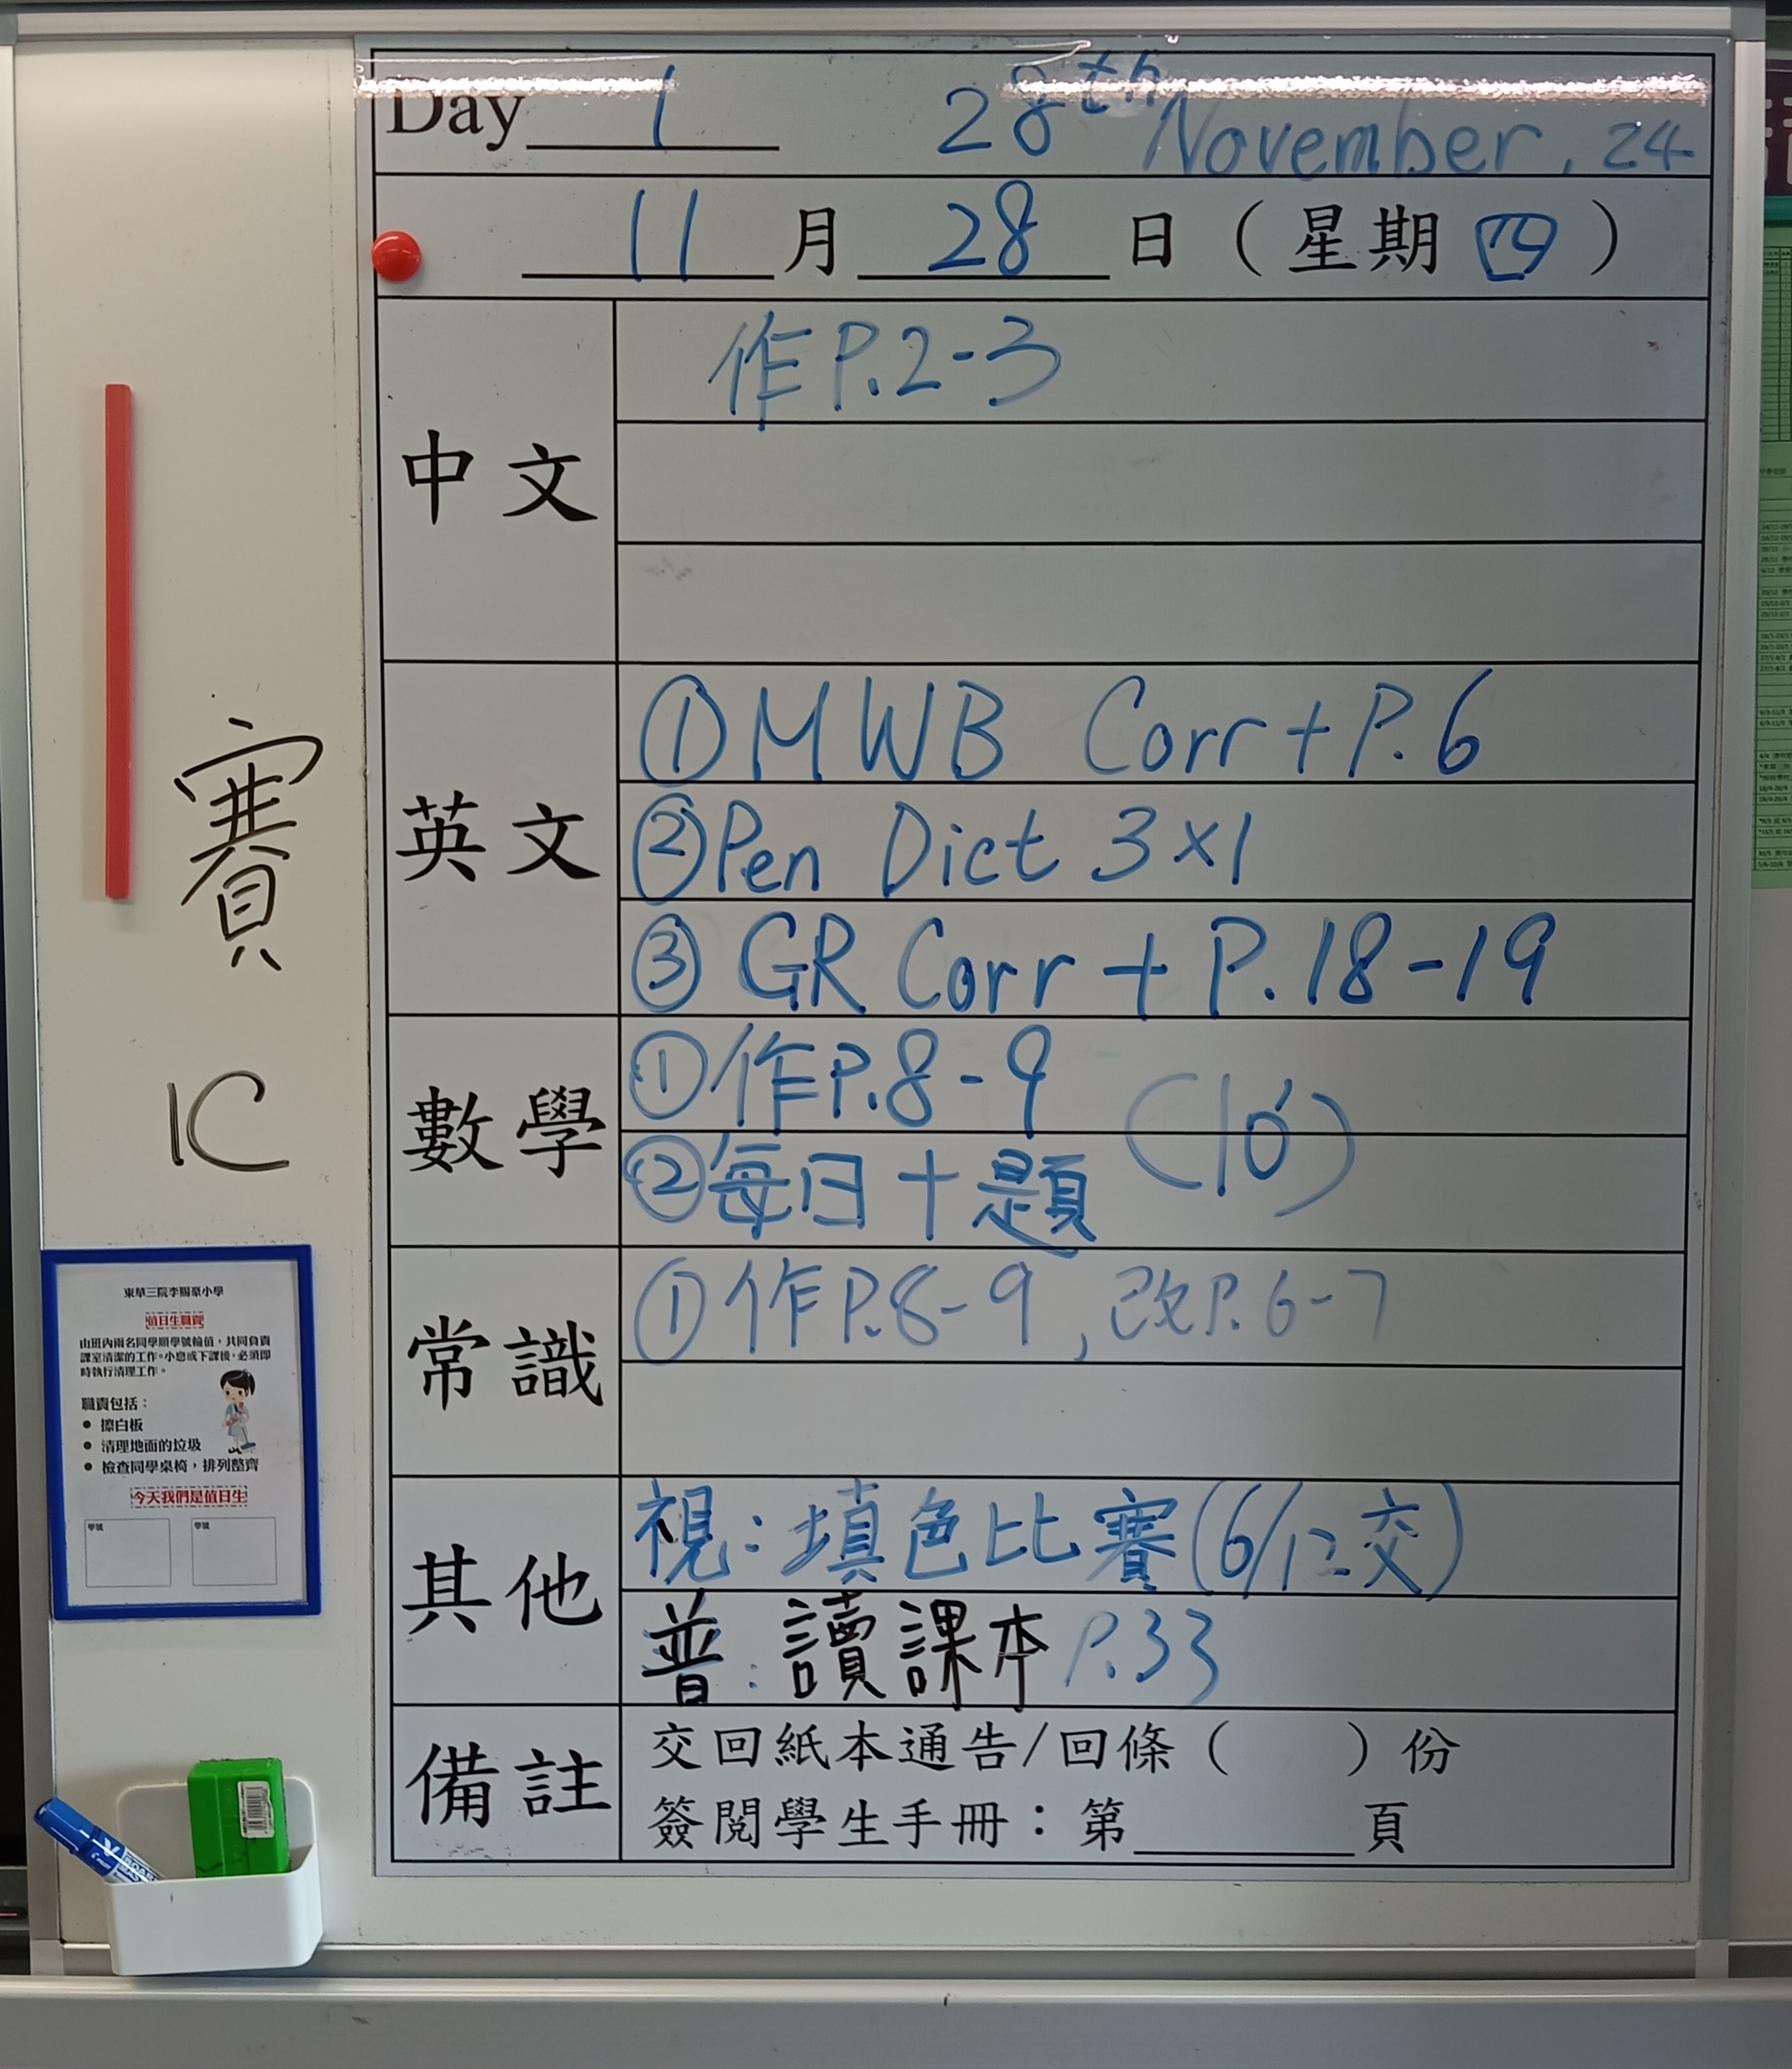 Day 1 28th November, 24
11月28日（星期四）
中文
作P.2-3
英文
①MWB Corr+P.6
②Pen Dict 3×1
③GR Corr+P.18-19
數學
①作P.8-9
②每日十題
常識
①作P.8-9,改P.6-7
其他
視:填色比賽(6/12交)
普:讀課本P.33
備註
交回紙本通告/回條（ ）份
簽閱學生手冊：第______頁
賽
1C
東華三院李賜豪小學
值日生職責
由班內兩名同學順學號輪值，共同負責
課室清潔的工作。小息或下課後，必須即
時執行清理工作。
職責包括：
● 擦白板
● 清理地面的垃圾
● 檢查同學桌椅，排列整齊
今天我們是值日生
學號 學號